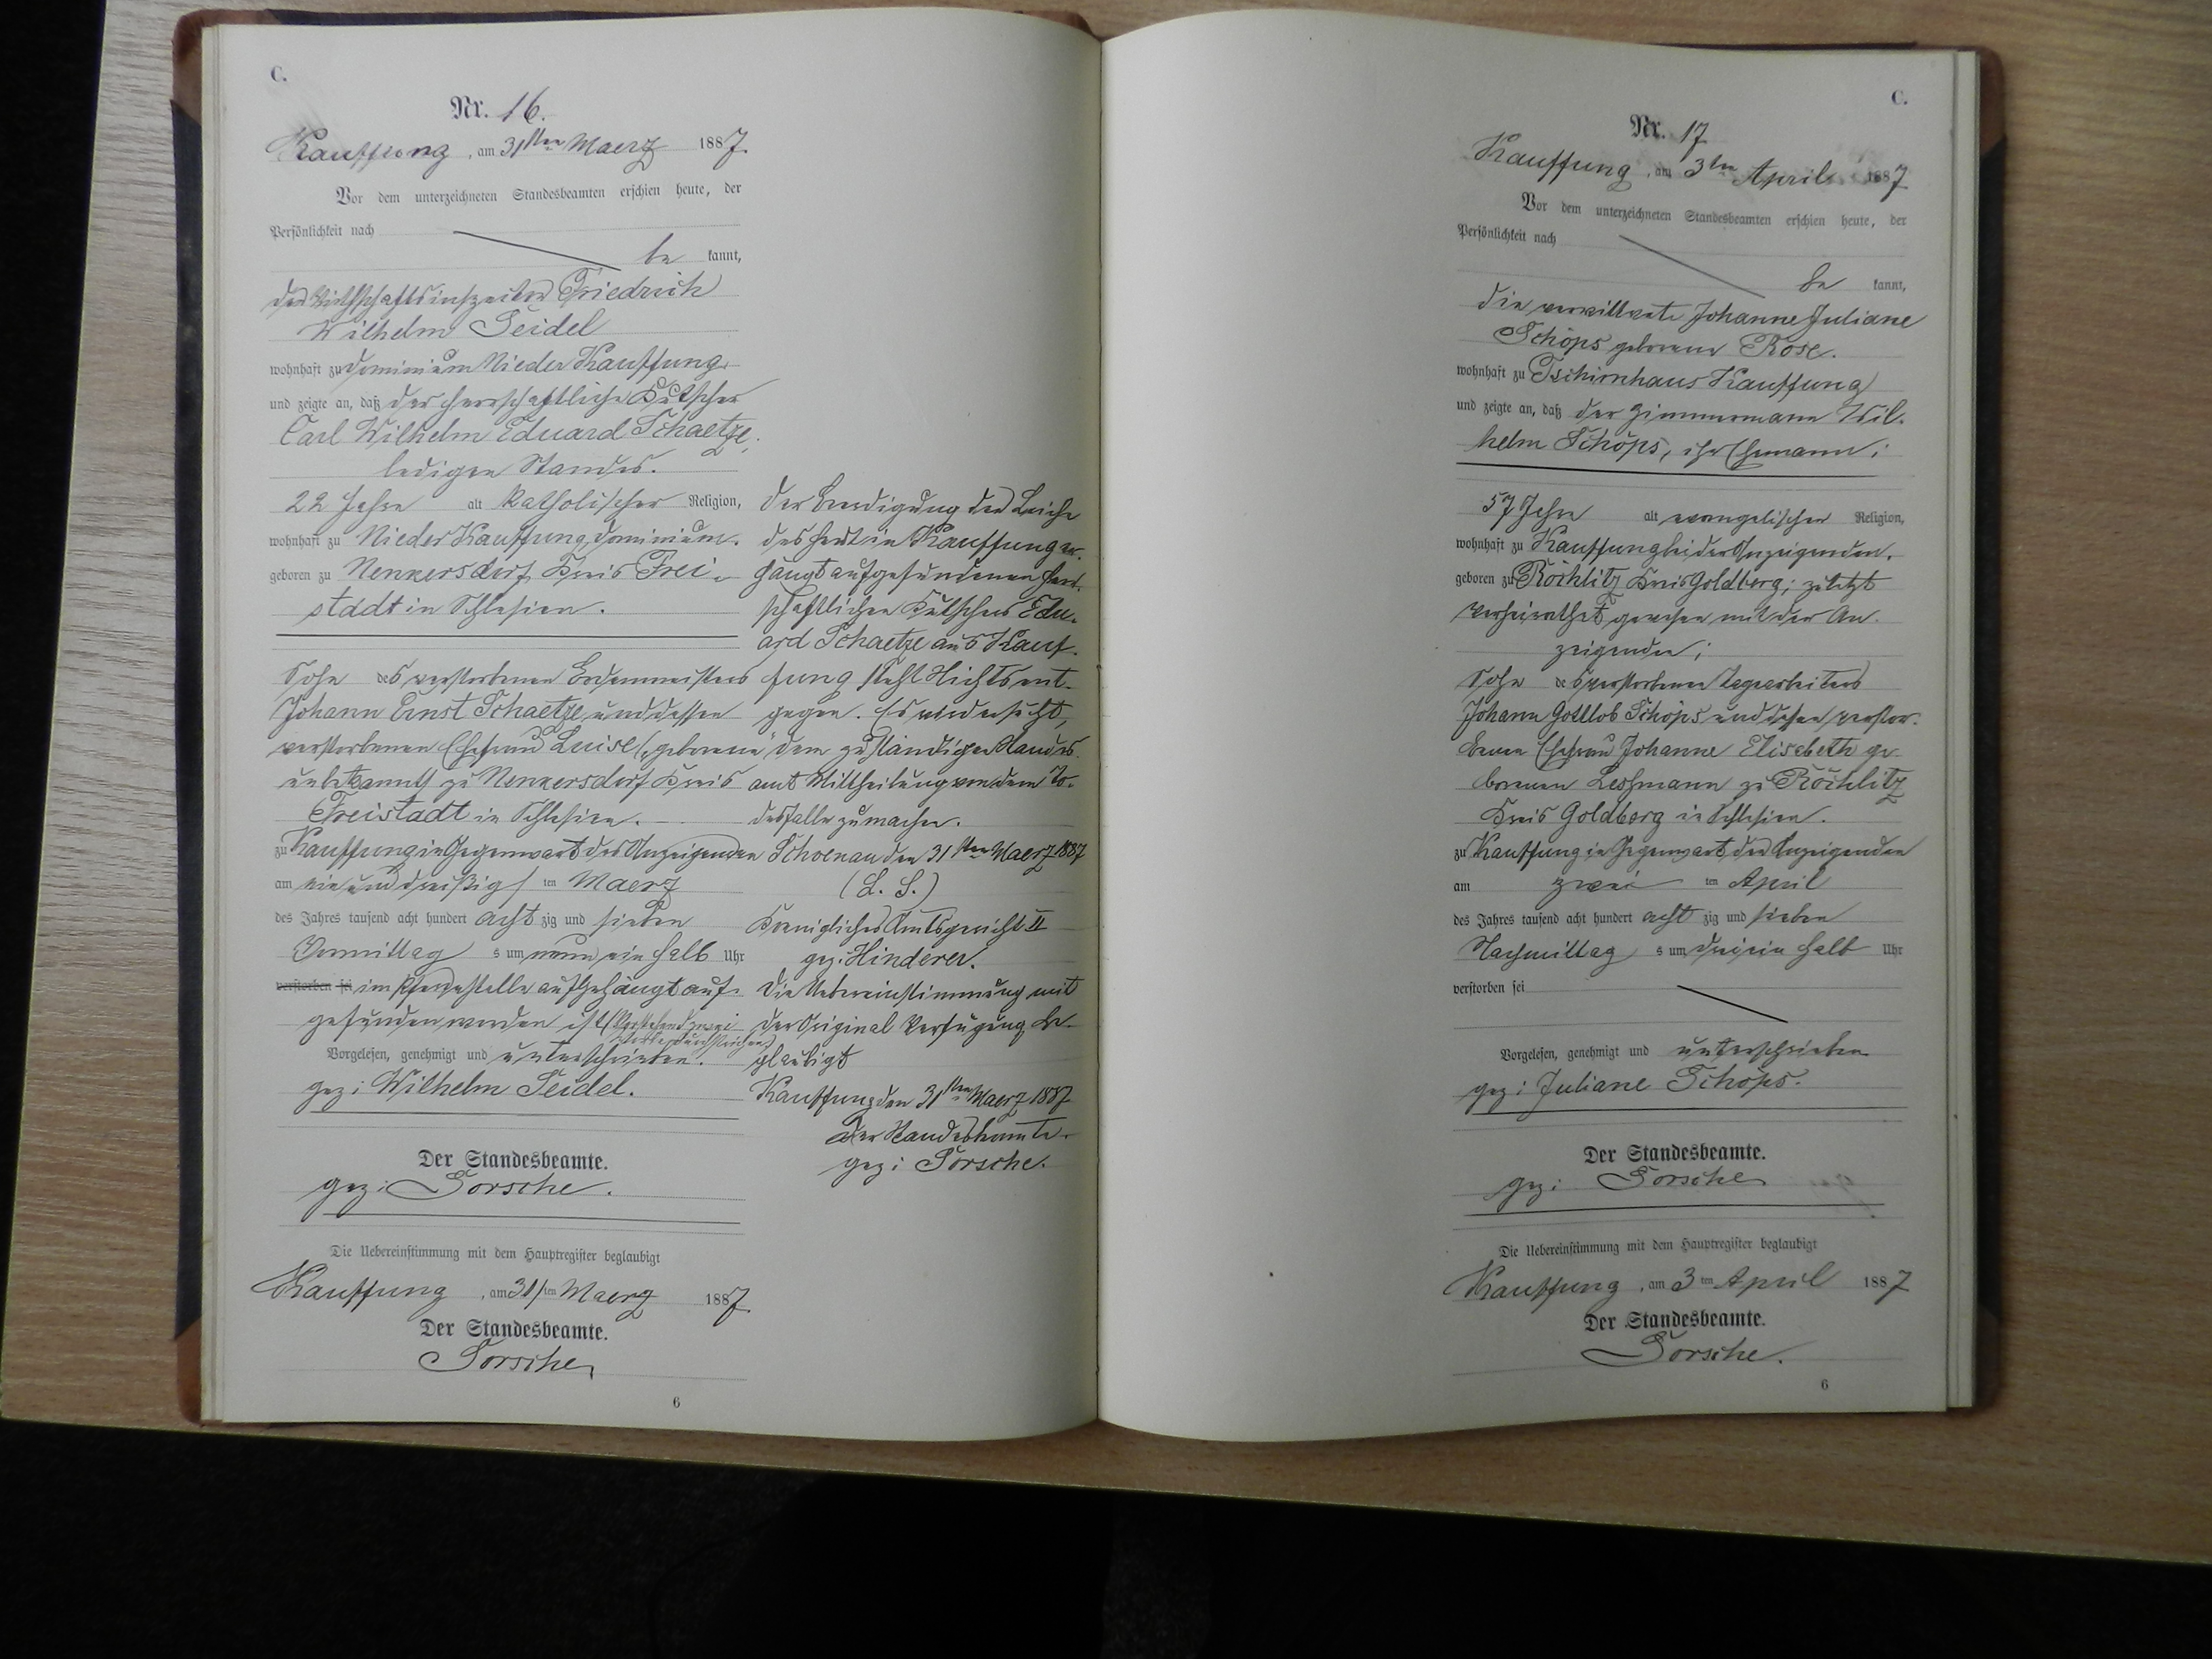 C.
Nr. 16.
Kauffung, am 31ten Maerz 1887.
Vor dem unterzeichneten Standesbeamten erschien heute, der
Persönlichkeit nach
be kannt,
der Wirthschaftsinspector Friedrich
Wilhelm Seidel
wohnhaft zu Dominium Nieder Kauffung
und zeigte an, daß der herrschaftliche Kutscher
Carl Wilhelm Eduard Schaetze,
ledigen Standes.
22 Jahre alt katholischer Religion,
wohnhaft zu Nieder Kauffung, Dominium.
geboren zu Nenkersdorf Kreis Frei-
stadt in Schlesien.
Sohn des verstorbenen
Johann Ernst Schaetze und dessen
verstorbenen Ehefrau Luise (geborene
unbekannt) zu Nenkersdorf Kreis
Freistadt in Schlesien.
zu Kauffung in Gegenwart des Anzeigenden
am ein und dreißigs ten Maerz
des Jahres tausend acht hundert acht zig und sieben
Vormittag s um neun ein halb Uhr
verstorben sei im Pferdestalle aufgehängt auf-
gefunden worden ist (Vorstehend zwei
Worte durchstrichen)
Vorgelesen, genehmigt und unterschrieben.
gez: Wilhelm Seidel.
Der Standesbeamte.
gez: Sorsche.
Die Uebereinstimmung mit dem Hauptregister beglaubigt
Kauffung, am 31sten Maerz 1887.
Der Standesbeamte.
Sorsche
6
Der Beerdigung der Leiche
des heut in Kauffung er-
hängt aufgefundenen herr-
schaftlichen Kutschers Edu-
ard Schaetze aus Kauf-
fung steht Nichts ent-
gegen. Es wird ersucht,
dem zuständigen Standes-
amt Mittheilung von dem To-
desfalle zu machen.
Schoenau den 31ten Maerz 1887
(L. S.)
Koenigliches Amtsgericht II
gez: Hinderer.
Die Uebereinstimmung mit
der Original Verfügung be-
glaubigt
Kauffung den 31ten Maerz 1887
Der Standesbeamte.
gez: Sorsche.
C.
Nr. 17
Kauffung, am 3ten April 1887
Vor dem unterzeichneten Standesbeamten erschien heute, der
Persönlichkeit nach
be kannt,
die verwittwete Johanne Juliane
Schöps geborene Rose.
wohnhaft zu Tschirnhaus Kauffung
und zeigte an, daß der Zimmermann Wil-
helm Schöps, ihr Ehemann;
57 Jahre alt evangelischer Religion,
wohnhaft zu Kauffung bei der Anzeigenden,
geboren zu Röchlitz Kreis Goldberg; zuletzt
verheirathet gewesen mit der An-
zeigenden;
Sohn des verstorbenen Tagearbeiters
Johann Gottlob Schöps und dessen verstor-
benen Ehefrau Johanne Elisabeth ge-
borenen Lessmann zu Röchlitz
Kreis Goldberg in Schlesien.
zu Kauffung in Gegenwart der Anzeigenden
am zwei ten April
des Jahres tausend acht hundert acht zig und sieben
Nachmittag s um drei ein halb Uhr
verstorben sei
Vorgelesen, genehmigt und unterschrieben
gez: Juliane Schöps.
Der Standesbeamte.
gez: Sorsche
Die Uebereinstimmung mit dem Hauptregister beglaubigt
Kauffung, am 3ten April 1887
Der Standesbeamte.
Sorsche.
6